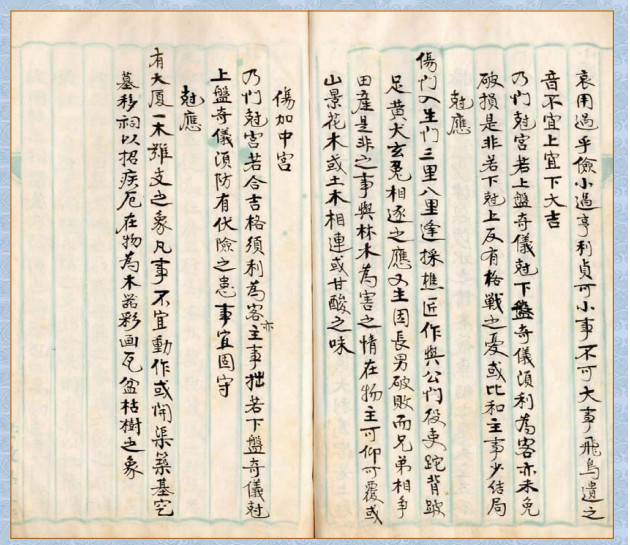 哀用過乎儉小過亨利貞可小事不可大事飛鳥遺之
音不宜上宜下大吉
乃門尅宮若上盤奇儀尅下盤奇儀須利為客亦未免
破損是非若下尅上反有格戰之憂或比和主事少結局
尅應
傷門入生門三里八里逢採樵匠作與公門役吏跎背跛
足黃犬玄兔相逐之應又主因長男破敗而兄弟相爭
田產是非之事與林木為害之情在物主可仰可覆或
山景花木或土木相連或甘酸之味
傷加中宮
乃門尅宮若合吉格須利為客亦主事拙若下盤奇儀尅
上盤奇儀須防有伏險之患事宜固守
尅應
有大厦一木難支之象凡事不宜動作或開渠築基穴
墓移祠以招疾厄在物為木器彩画瓦盆枯樹之象